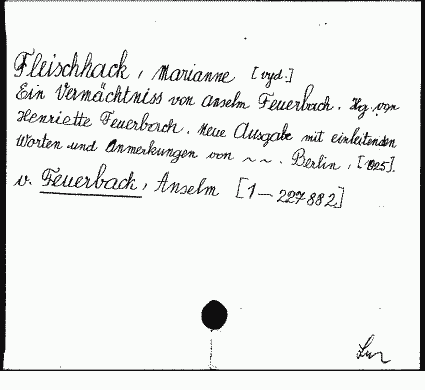 Fleischhack, Marianne [vyd.]
Ein Vermächtniss von Anselm Feuerbach. Hg. von
Henriette Feuerbach. Neue Ausgabe mit einleitenden
Worten und Anmerkungen von ~ ~. Berlin, [1925].
v. Feuerbach, Anselm [1-227882]